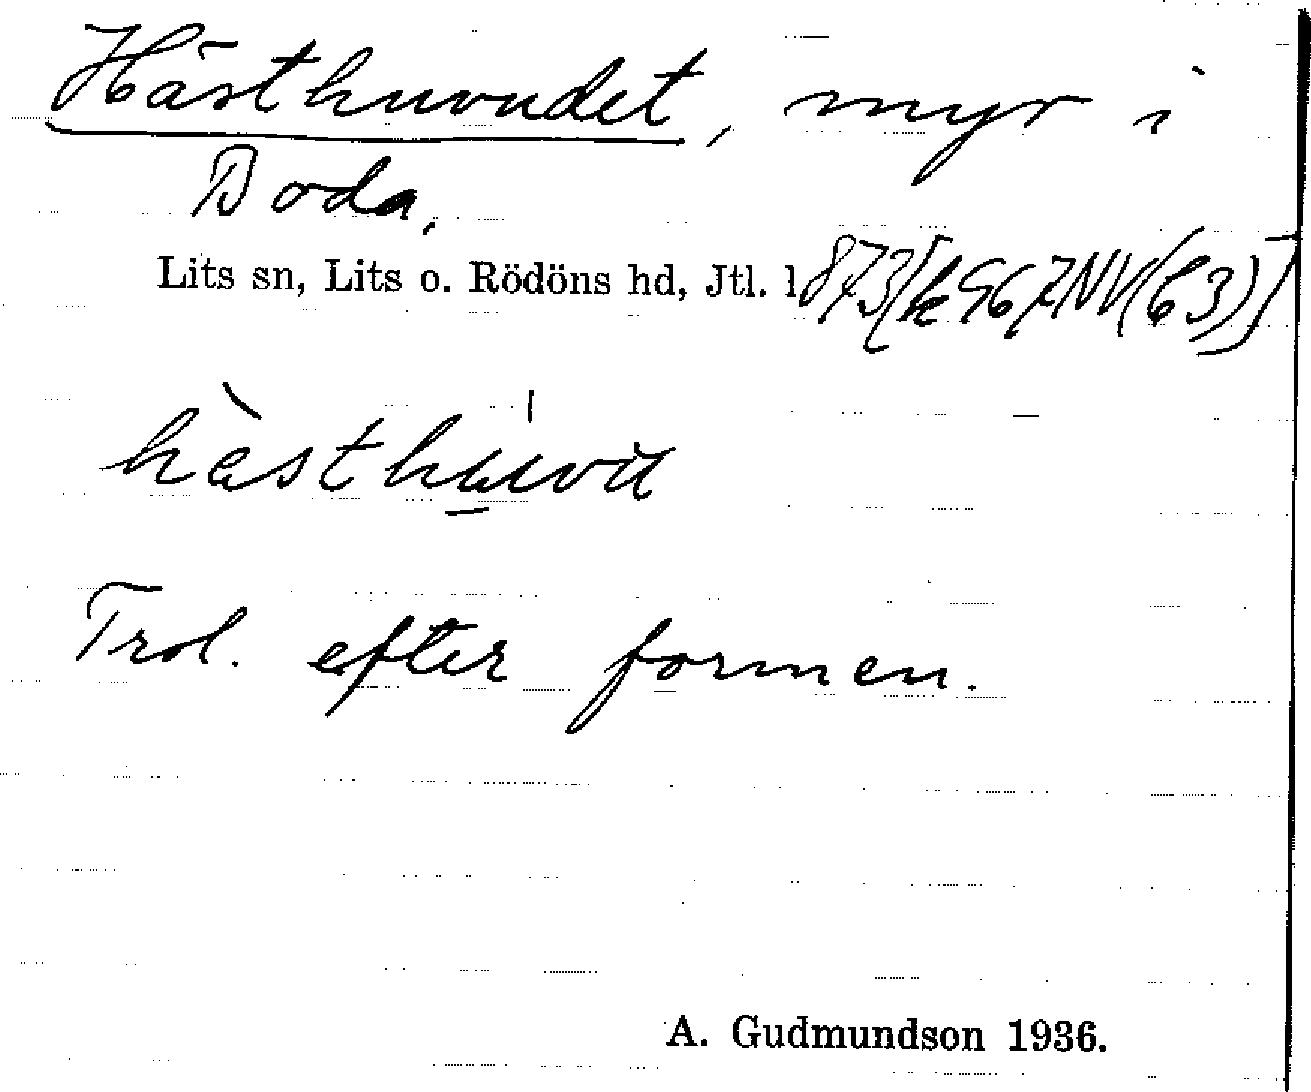 Hästhuvudet, myr i
Boda.
Lits sn, Lits o. Rödöns hd, Jtl. l
hàsthúvu
Trol. efter formen.
A. Gudmundson 1936.